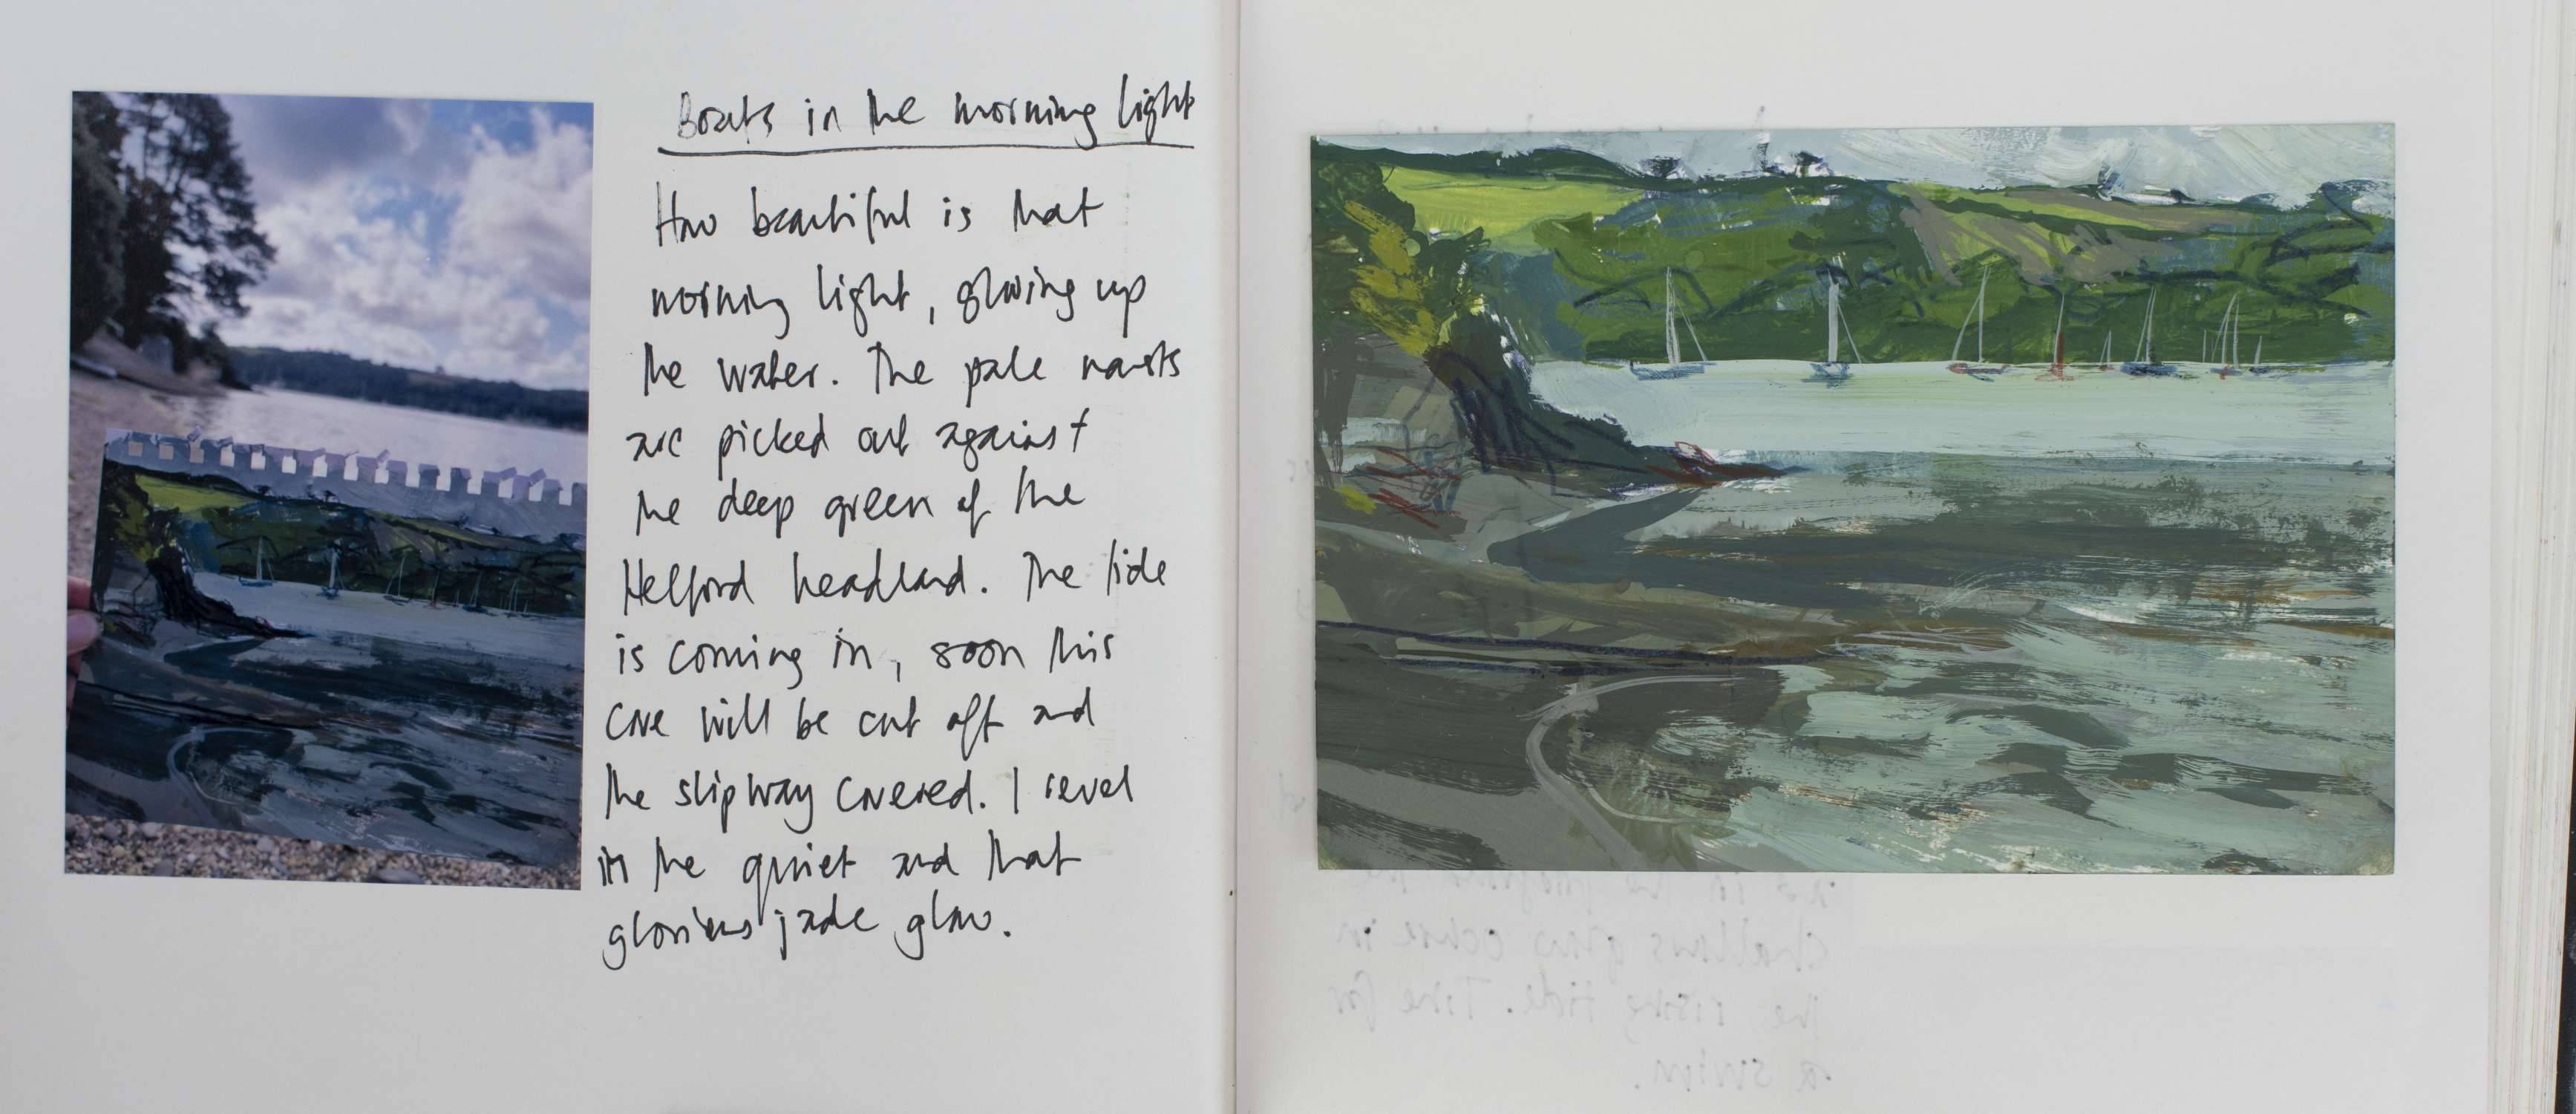 Boats in the morning light
How beautiful is that
morning light, glowing up
the water. The pale masts
are picked out against
the deep green of the
Helford headland. The tide
is coming in, soon this
cove will be cut off and
the slipway covered. I revel
in the quiet and that
glorious jade glow.
shallows glow ochre in
the rising tide. Time for
a swim.